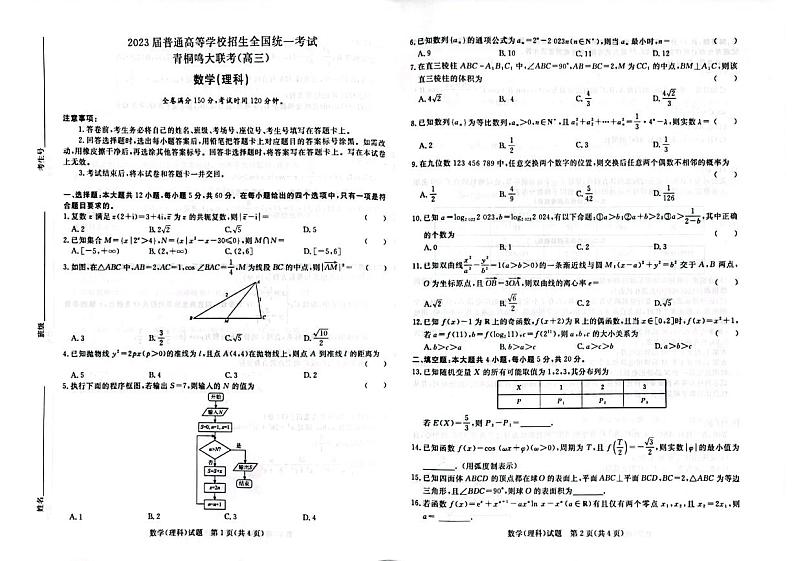 2023届普通高等学校招生全国统一考试
青桐鸣大联考(高三)
数学(理科)
全卷满分150分,考试时间120分钟。
注意事项:
1.答卷前,考生务必将自己的姓名、班级、考场号、座位号、考生号填写在答题卡上。
2.回答选择题时,选出每小题答案后,用铅笔把答题卡上对应题目的答案标号涂黑。如需改
动,用橡皮擦干净后,再选涂其他答案标号。回答非选择题时,将答案写在答题卡上。写在本试卷
上无效。
3.考试结束后,将本试卷和答题卡一并交回。
一、选择题:本大题共12小题,每小题5分,共60分。在每小题给出的四个选项中,只有一项是符
合题目要求的。
1.复数z满足z(2+i)=3+4i,z̄为z的共轭复数,则|z̄-i|= ( )
A.2 B.2√2 C.√5 D.5
2.已知集合M={x|2ˣ>4},N={x|x²-x-30≤0},则M∩N= ( )
A.[-5,+∞) B.(2,+∞) C.(2,6] D.[-5,6]
3.如图,在△ABC中,AB=2,AC=1,cos∠BAC=1/4,M为线段BC的中点,则|AM|²= ( )
A B M C 2 1
A.3 B.3/2 C.√5 D.√10/2
4.已知抛物线y²=2px(p>0)的准线为l,且点A(4,4)在抛物线上,则点A到准线l的距离为
( )
A.5 B.4 C.3 D.2
5.执行下面的程序框图,若输出S=7,则输入的N的值为 ( )
开始
输入N
S=0,n=1,a=1
n>N? 是
否 输出S
S=S+a 结束
a=2a
n=n+1
A.1 B.2 C.3 D.4
数学(理科)试题 第1页(共4页)
考生号
班级
姓名
6.已知数列{aₙ}的通项公式为aₙ=2ⁿ-2 023n(n∈N*),则当aₙ最小时,n= ( )
A.9 B.10 C.11 D.12
7.在直三棱柱ABC-A₁B₁C₁中,∠ABC=90°,AB=BC=2,M为CC₁的中点,BM⊥A₁C,则该
直三棱柱的体积为 ( )
A.4√2 B.4 C.4/3 D.4√2/3
8.已知数列{aₙ}为等比数列,aₙ>0,n∈N*,且a₁²+a₂²+⋯+aₙ²=1/3·4ⁿ-λ,则实数λ= ( )
A.2 B.1/2 C.1/3 D.3
9.在九位数123 456 789中,任意交换两个数字的位置,则交换后任意两个偶数不相邻的概率为
( )
A.1/2 B.4/9 C.5/42 D.1/126
10.已知a=log₂₀₂₂2 023,b=log₂₀₂₃2 024,有以下命题:①a>b;②a+b>2;③a>1/(2-b),其中正确
的个数为 ( )
A.0 B.1 C.2 D.3
11.已知双曲线x²/a²-y²/b²=1(a>b>0)的一条渐近线与圆M:(x-a)²+y²=b²交于A,B两点,
O为坐标原点,且OB=3OA,则双曲线的离心率e= ( )
A.√2 B.√6/2 C.2 D.√5
12.已知f(x)-1为R上的奇函数,f(x+2)为R上的偶函数,且当x∈[0,2]时,f(x)=x²+1,
若a=f(1),b=f(log₂11),c=f(2¹¹),则a,b,c的大小关系为 ( )
A.b>c>a B.b>a>c C.a>c>b D.a>b>c
二、填空题:本大题共4小题,每小题5分,共20分。
13.已知随机变量X的所有可能取值为1,2,3,其分布列为
X 1 2 3
P P₁ P₂ P₃
若E(X)=5/3,则P₃-P₁=______.
14.已知函数f(x)=cos(ωx+φ)(ω>0),周期为T,且f(T/2)=-√3/2,则实数|φ|的最小值为
______.(用弧度制表示)
15.已知四面体ABCD的顶点都在球O的表面上,平面ABC⊥平面BCD,BC=2,△ABC为等边
三角形,且∠BDC=90°,则球O的表面积为______.
16.若函数f(x)=eˣ+xᵃ⁻¹-axᵃln x-xᵃ(a∈R)有且仅有两个零点x₁,x₂,且x₂=2x₁,则
a=______.
数学(理科)试题 第2页(共4页)